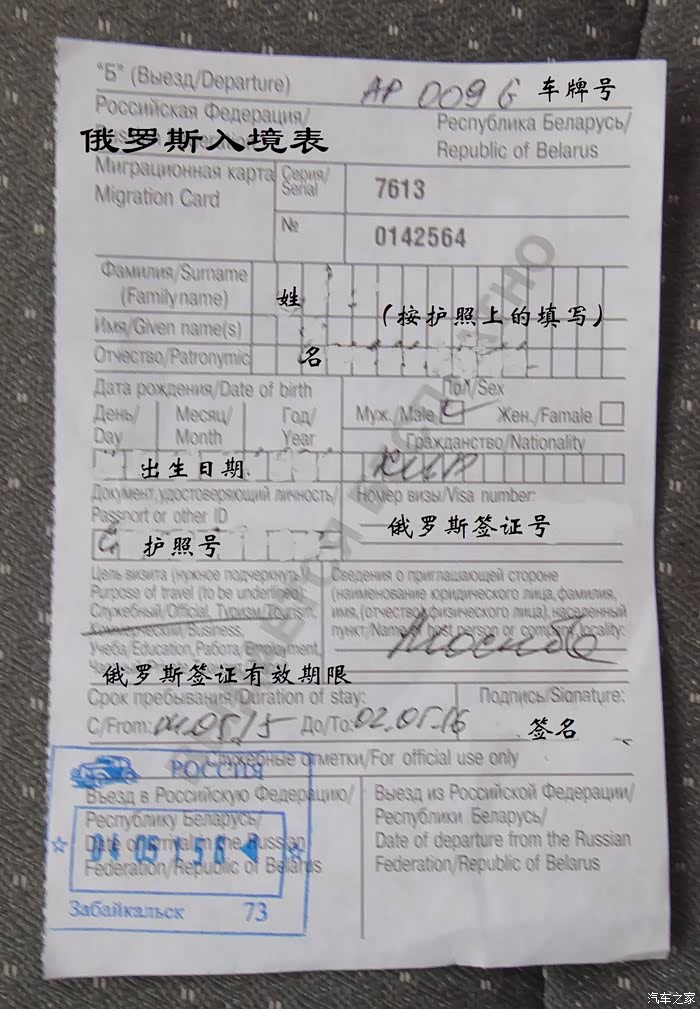 "Б" (Выезд/Departure)
АР 009 G 车牌号
Российская Федерация/
Республика Беларусь/
俄罗斯入境表
Republic of Belarus
Миграционная карта
Migration Card
Серия/
Serial
7613
№
0142564
Фамилия/Surname
(Family name)
姓
(按护照上的填写)
Имя/Given name(s)
Отчество/Patronymic
名
Дата рождения/Date of birth
Пол/Sex
День/
Day
Месяц/
Month
Год/
Year
Муж./Male
Жен./Famale
Гражданство/Nationality
出生日期
Документ, удостоверяющий личность/
Passport or other ID
Номер визы/Visa number:
护照号
俄罗斯签证号
Цель визита (нужное подчеркнуть)/
Purpose of travel (to be underlined):
Служебный/Official, Туризм/Tourism,
Коммерческий/Business,
Учеба/Education, Работа/Employment,
Сведения о приглашающей стороне
(наименование юридического лица, фамилия,
имя, (отчество) физического лица), населенный
пункт/Name of host person or company, locality:
俄罗斯签证有效期限
Срок пребывания/Duration of stay:
Подпись/Signature:
С/From: 04.05.15 До/To: 02.05.16
签名
Служебные отметки/For official use only
РОССИЯ
Въезд в Российскую Федерацию/
Республику Беларусь/
Date of arrival in the Russian
Federation/Republic of Belarus
Забайкальск 73
Выезд из Российской Федерации/
Республики Беларусь/
Date of departure from the Russian
Federation/Republic of Belarus
汽车之家